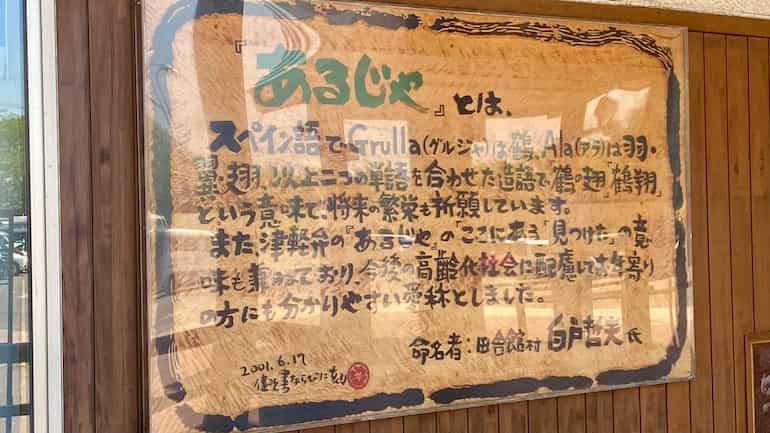 『あるじゃ』とは、
スペイン語でGrulla(グルジャ)は鶴、Ala(アラ)は羽・
翼・翅、以上二つの単語を合わせた造語で、鶴の翅「鶴翔」
という意味で、将来の繁栄も祈願しています。
また、津軽弁の『あるじゃ』の「ここにある」「見つけた」の意
味も兼ねており、今後の高齢化社会に配慮してお年寄り
の方にも分かりやすい愛称としました。
命名者:田舎館村 白戸哲夫氏
2001.6.17